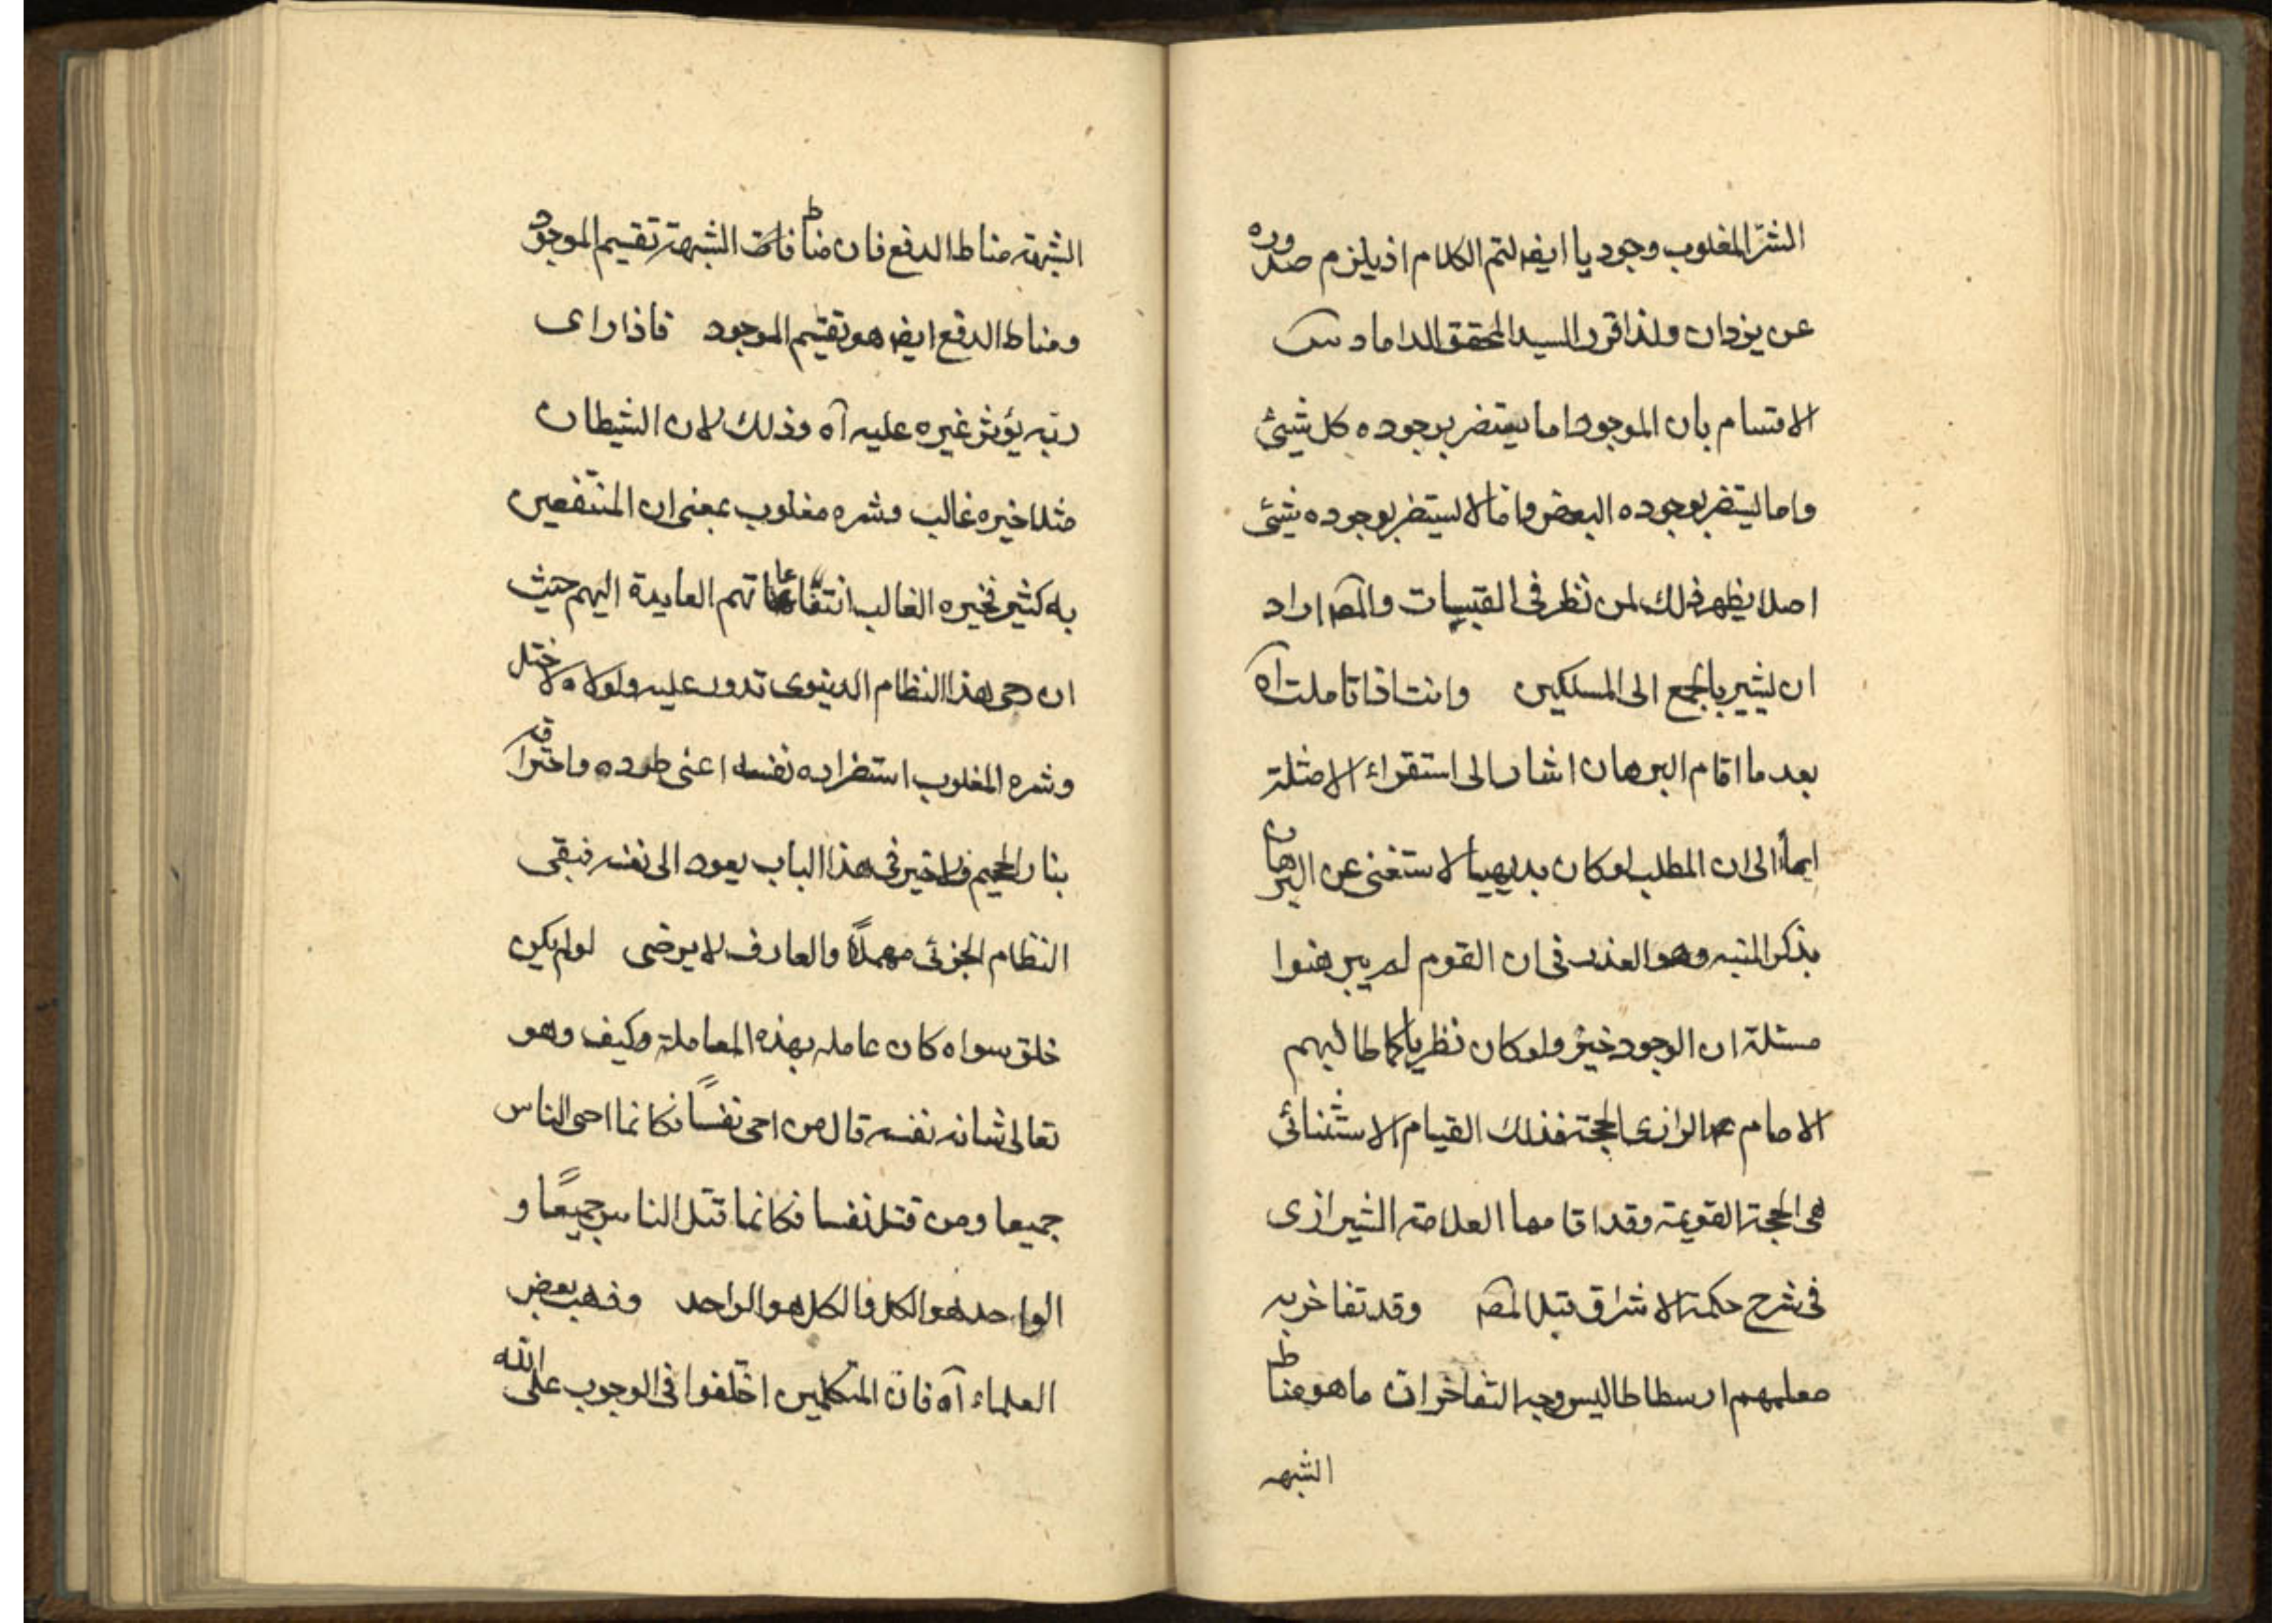 الشرّ المغلوب وجوديا ايضا لتم الكلام اذ يلزم صدوره
عن يزدان ولذا قرر السيد المحقق الداماد س
الاقسام بان الموجود اما يستضر بوجوده كل شيئ
واما يستضر بوجوده البعض واما لا يستضر بوجوده شيئ
اصلا يظهر ذلك لمن نظر فى القبسات والمصه اراد
ان يشير بالجمع الى المسلكين وانت اذا تاملت آه
بعد ما اقام البرهان اشار الى استقراء الامثلة
ايماءً الى ان المطلب لو كان بديهيا لاستغنى عن البرهان
بذكر المنبه وهو العذر فى ان القوم لم يبرهنوا
مسئلة ان الوجود خير ولو كان نظريا كما طالبهم
الامام الرازى الحجة فذلك القيام الاستثنائى
هى الحجة القويمة وقد اقامها العلامة الشيرازى
فى شرح حكمة الاشراق قبل المصه وقد تفاخر به
معلمهم ارسطاطاليس وجه التفاخر ان ما هو مناط
الشبهه
الشبهة مناط الدفع فان مناط الشبهة تقسيم الموجود
ومناط الدفع ايضا هو تقسيم الموجود فاذا راى
ربه يؤثر غيره عليه آه وذلك لان الشيطان
مثلا خيره غالب وشره مغلوب بمعنى ان المنتفعين
به كثير فخيره الغالب انتفاعاتهم العايدة اليهم حيث
ان رحى هذا النظام الدنيوى تدور عليه ولولاه لاختل
وشره المغلوب استضراره نفسه اعنى طرده واحتراقه
بنار الجحيم فلا خير فى هذا الباب يعود الى نفسه فبقى
النظام الجزئى مهملاً والعارف لا يرضى لو لم يكن
خلق سواه كان عامله بهذه المعاملة وكيف وهو
تعالى شانه نفسه قال من احى نفسًا فكانما احى الناس
جميعا ومن قتل نفسا فكانما قتل الناس جميعًا و
الواحد هو الكل والكل هو الواحد وذهب بعض
العلماء آه فان المتكلمين اختلفوا فى الوجوب على الله